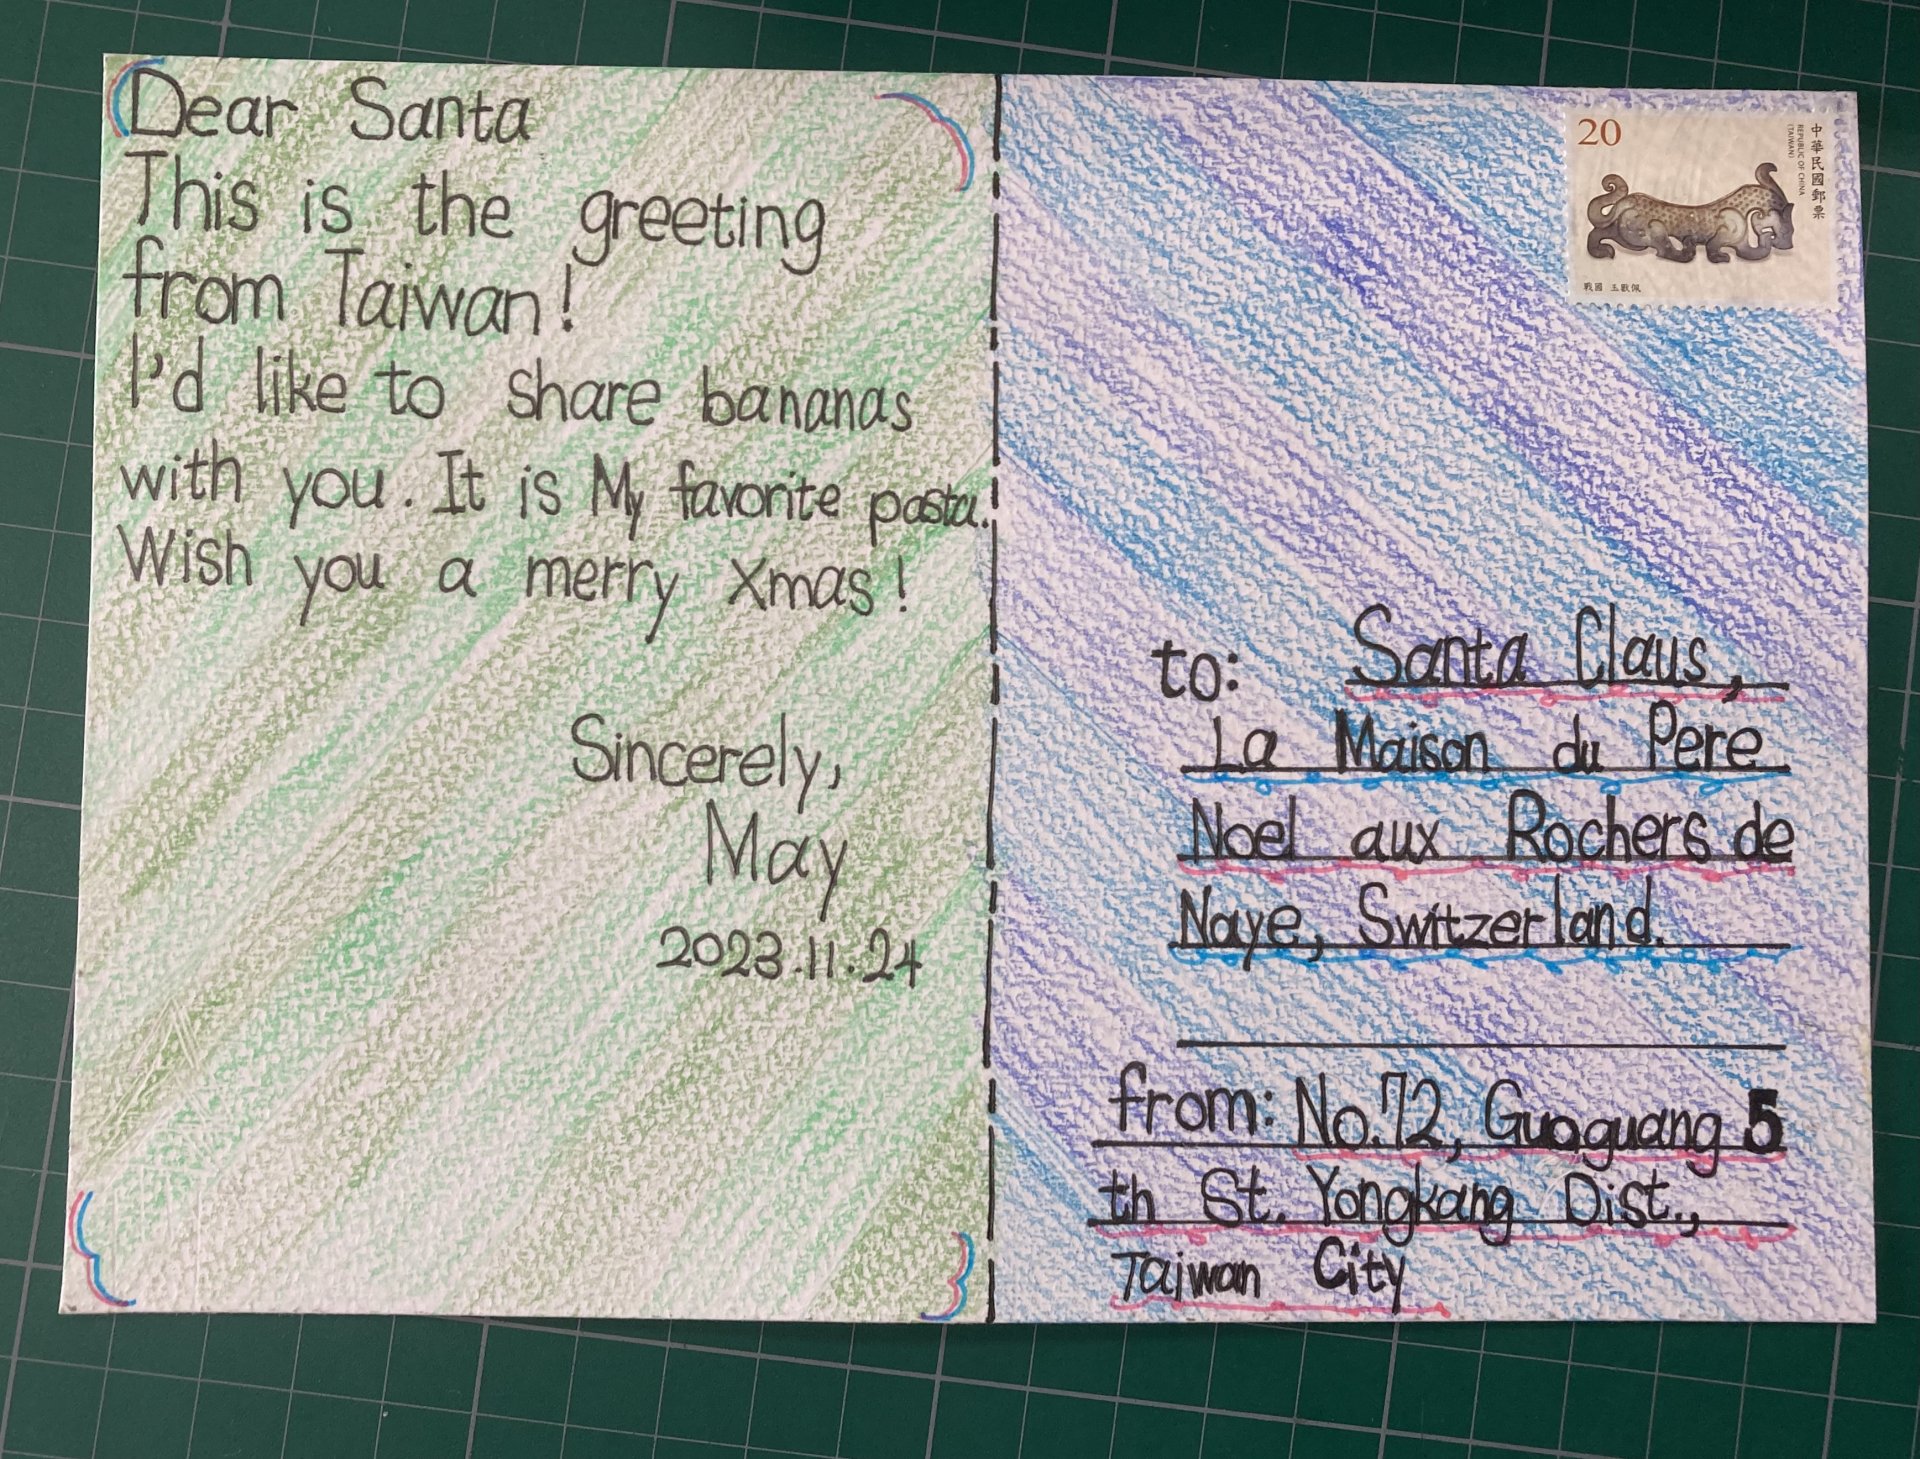 Dear Santa
This is the greeting
from Taiwan!
I'd like to share bananas
with you. It is My favorite pasta.
Wish you a merry Xmas!
Sincerely,
May
2023.11.24
20
中華民國郵票
REPUBLIC OF CHINA
(TAIWAN)
戰國 玉獸佩
to: Santa Claus,
La Maison du Pere
Noel aux Rochers de
Naye, Switzerland.
from: No.72, Guoguang 5
th St. Yongkang Dist.,
Taiwan City